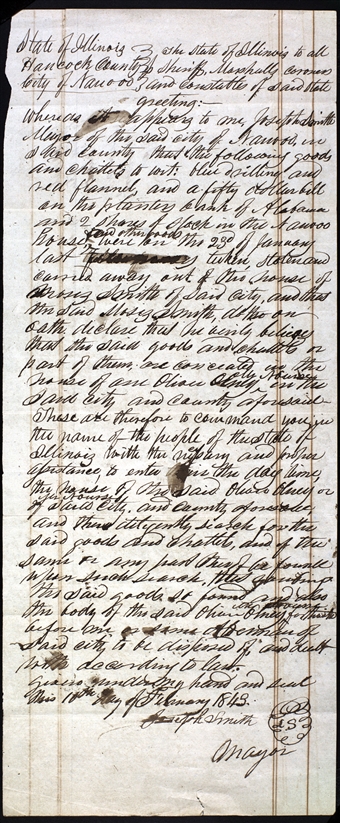 State of Illinois } The State of Illinois to all
Hancock County } Sheriffs, Marshalls, coroners
City of Nauvoo } and constables of said State
greeting:—
Whereas it appears to me, Joseph Smith
Mayor of the said city of Nauvoo, in
said county that the following goods
and chattels to wit: blue drilling and
red flannel, and a fifty dollar bill
on the planters bank of Alabama
and 2 shares of stock in the Nauvoo
house, and other goods were on the 23d of January
last taken stolen and
carried away out of the house of
Moses Smith of said City, and that
the said Moses Smith, doth on
oath declare that he verily believes
that the said goods and chattels or
part of them are concealed in the
house of one Oliver Olney or Nowies in the
said city and county aforesaid
These are therefore to command you in
the name of the people of the State of
Illinois with the necessary and proper
assistance to enter in the day time,
the house of the said Oliver Olney or
of said City, and county aforesaid
and there diligently search for the
said goods and chattels, and if the
same or any part thereof be found
upon such search, that you bring
the said goods so found and also
the body of the said Oliver Olney
before me or some alderman of
said city to be disposed of and dealt
with according to law.
Given under my hand and seal
this 10th day of February 1843.
Joseph Smith
LS
Mayor